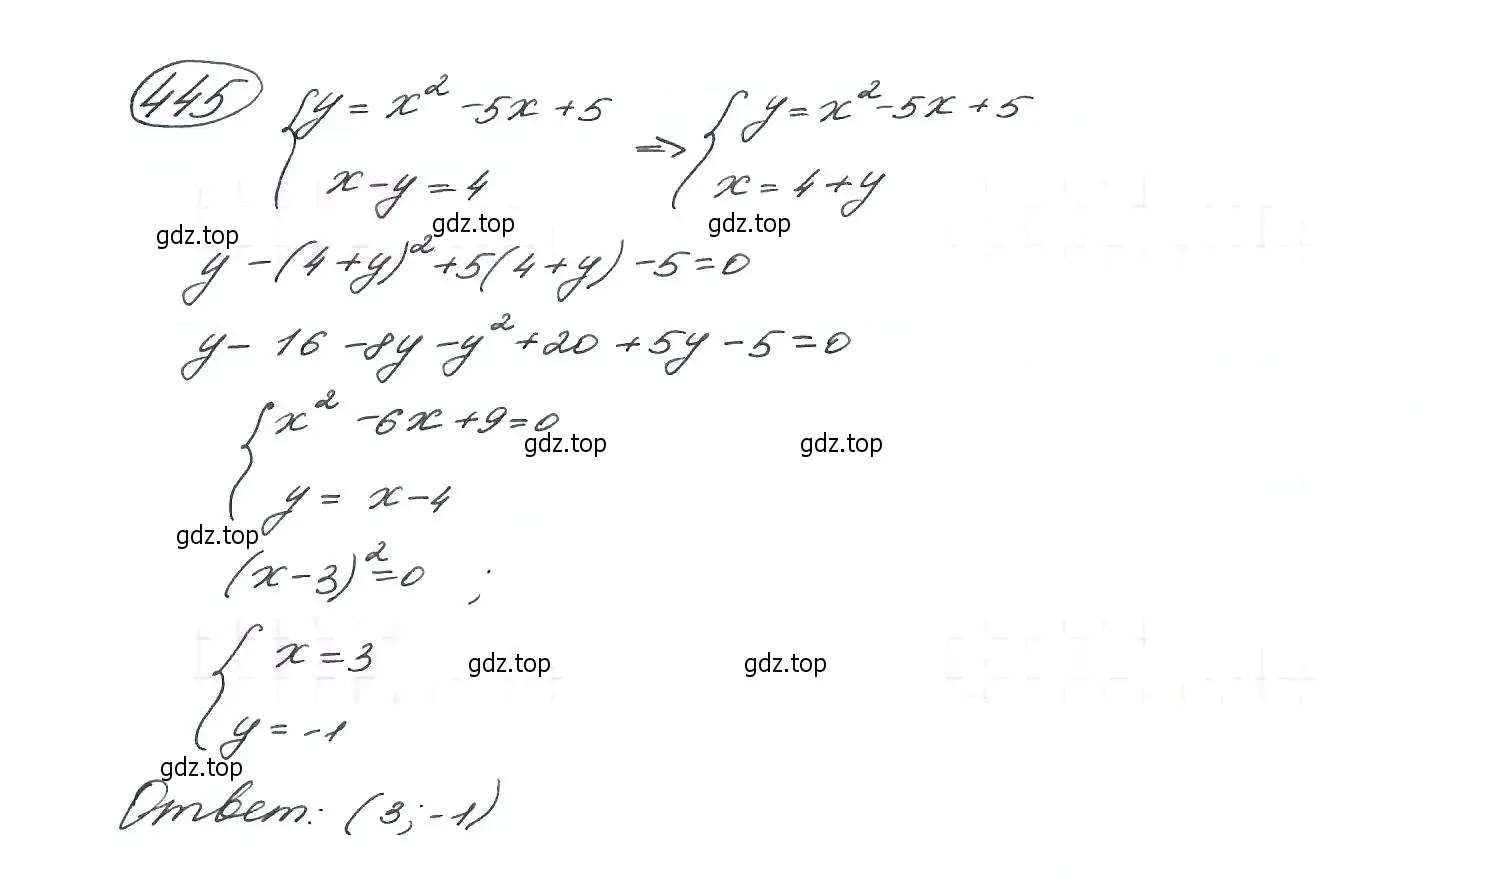 445 { y = x² - 5x + 5 ⇒ { y = x² - 5x + 5
x - y = 4 x = 4 + y
gdz.top gdz.top gdz.top
y - (4 + y)² + 5(4 + y) - 5 = 0
y - 16 - 8y - y² + 20 + 5y - 5 = 0
{ x² - 6x + 9 = 0
gdz.top gdz.top
y = x - 4
gdz.top
(x - 3)² = 0 ;
{ x = 3
gdz.top gdz.top
y = -1
gdz.top
Ответ: (3; -1)